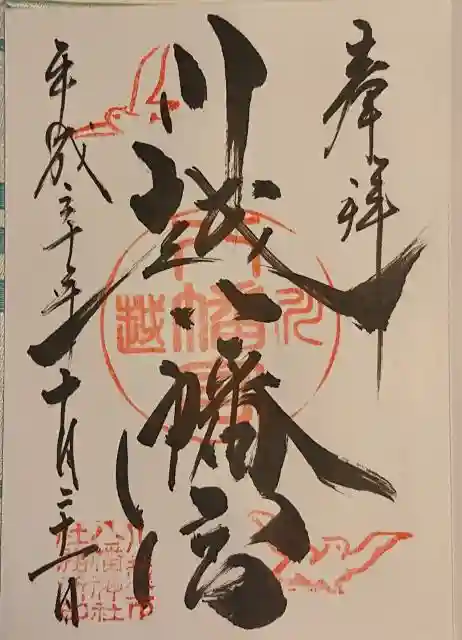 奉拝
川越八幡宮
平成三十年十月二十一日
川越
八幡宮
川越市
八幡神社
社務所印